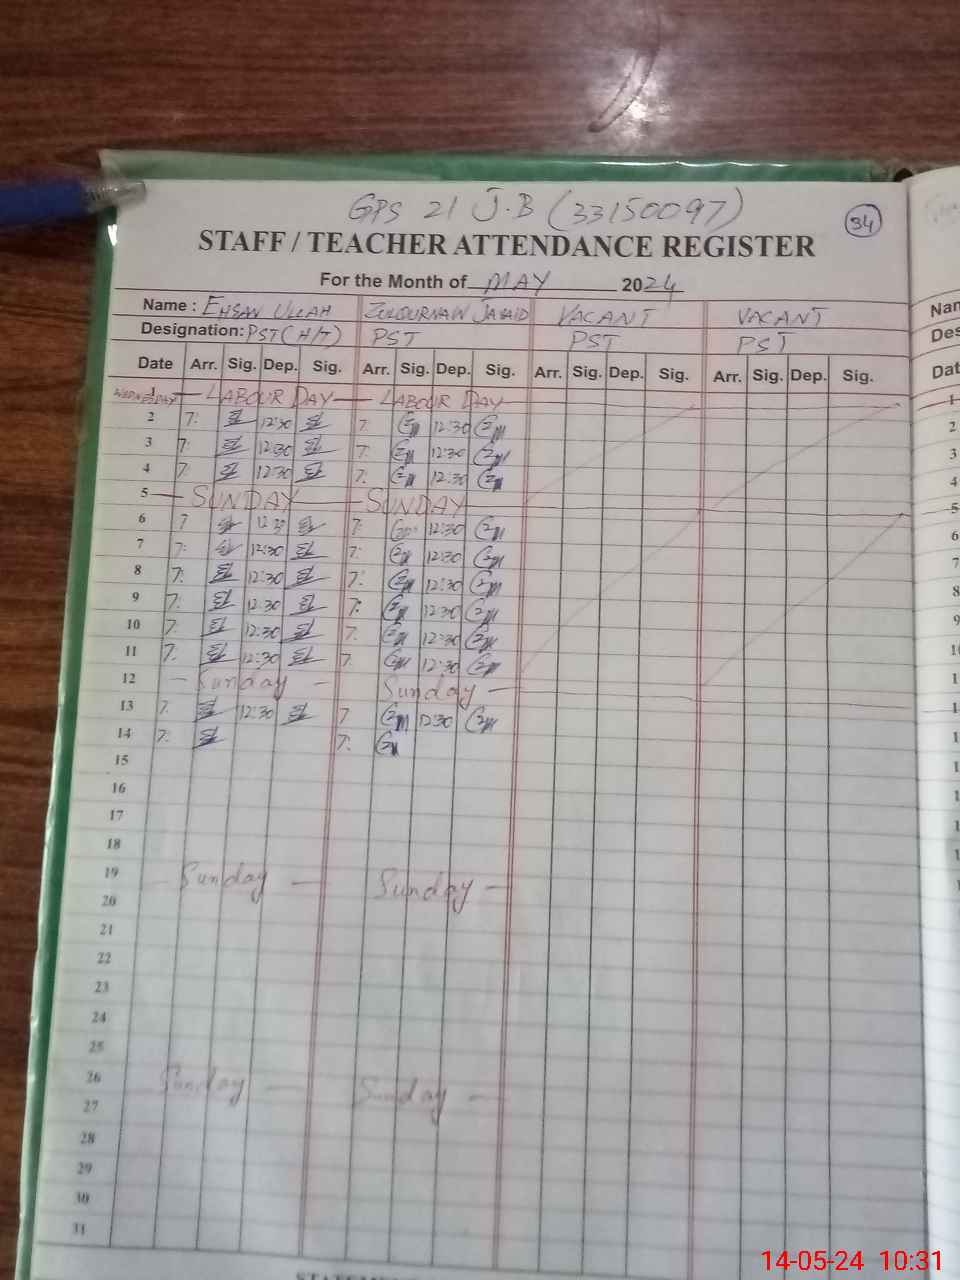 GPS 21 J.B (33150097)
34
STAFF / TEACHER ATTENDANCE REGISTER
For the Month of MAY 2024
Name : EHSAN ULLAH ZULQURNAIN JAVAID VACANT VACANT Nan
Designation: PST(H/T) PST PST PST Des
Date Arr. Sig. Dep. Sig. Arr. Sig. Dep. Sig. Arr. Sig. Dep. Sig. Arr. Sig. Dep. Sig. Dat
WEDNESDAY 1 LABOUR DAY LABOUR DAY 1
2 7: 12:30 7: 12:30 2
3 7: 12:30 7: 12:30 3
4 7: 12:30 7: 12:30 4
5 SUNDAY SUNDAY 5
6 7 12:30 7: 12:30 6
7 7: 12:30 7: 12:30 7
8 7: 12:30 7: 12:30 8
9 7: 12:30 7: 12:30 9
10 7: 12:30 7: 12:30 10
11 7: 12:30 7: 12:30 1
12 Sunday Sunday 1
13 7: 12:30 7 12:30 1
14 7: 7: 1
15
16
17
18
19 Sunday Sunday
20
21
22
23
24
25
26 Sunday Sunday
27
28
29
30
31
14-05-24 10:31